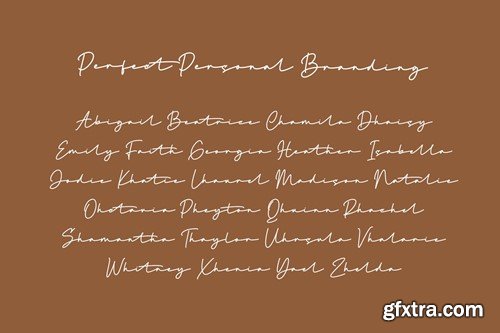 Perfect Personal Branding
Abigail Beatrize Chamila Dhaisy
Emily Faith Georgia Heather Isabella
Jodie Khatie Lhaurel Madison Natalie
Oktavia Pheyton Qhuina Rhachel
Shamantha Thaylor Uhrsula Vhalarie
Whitney Xhenia Yael Zhelda
gfxtra.com